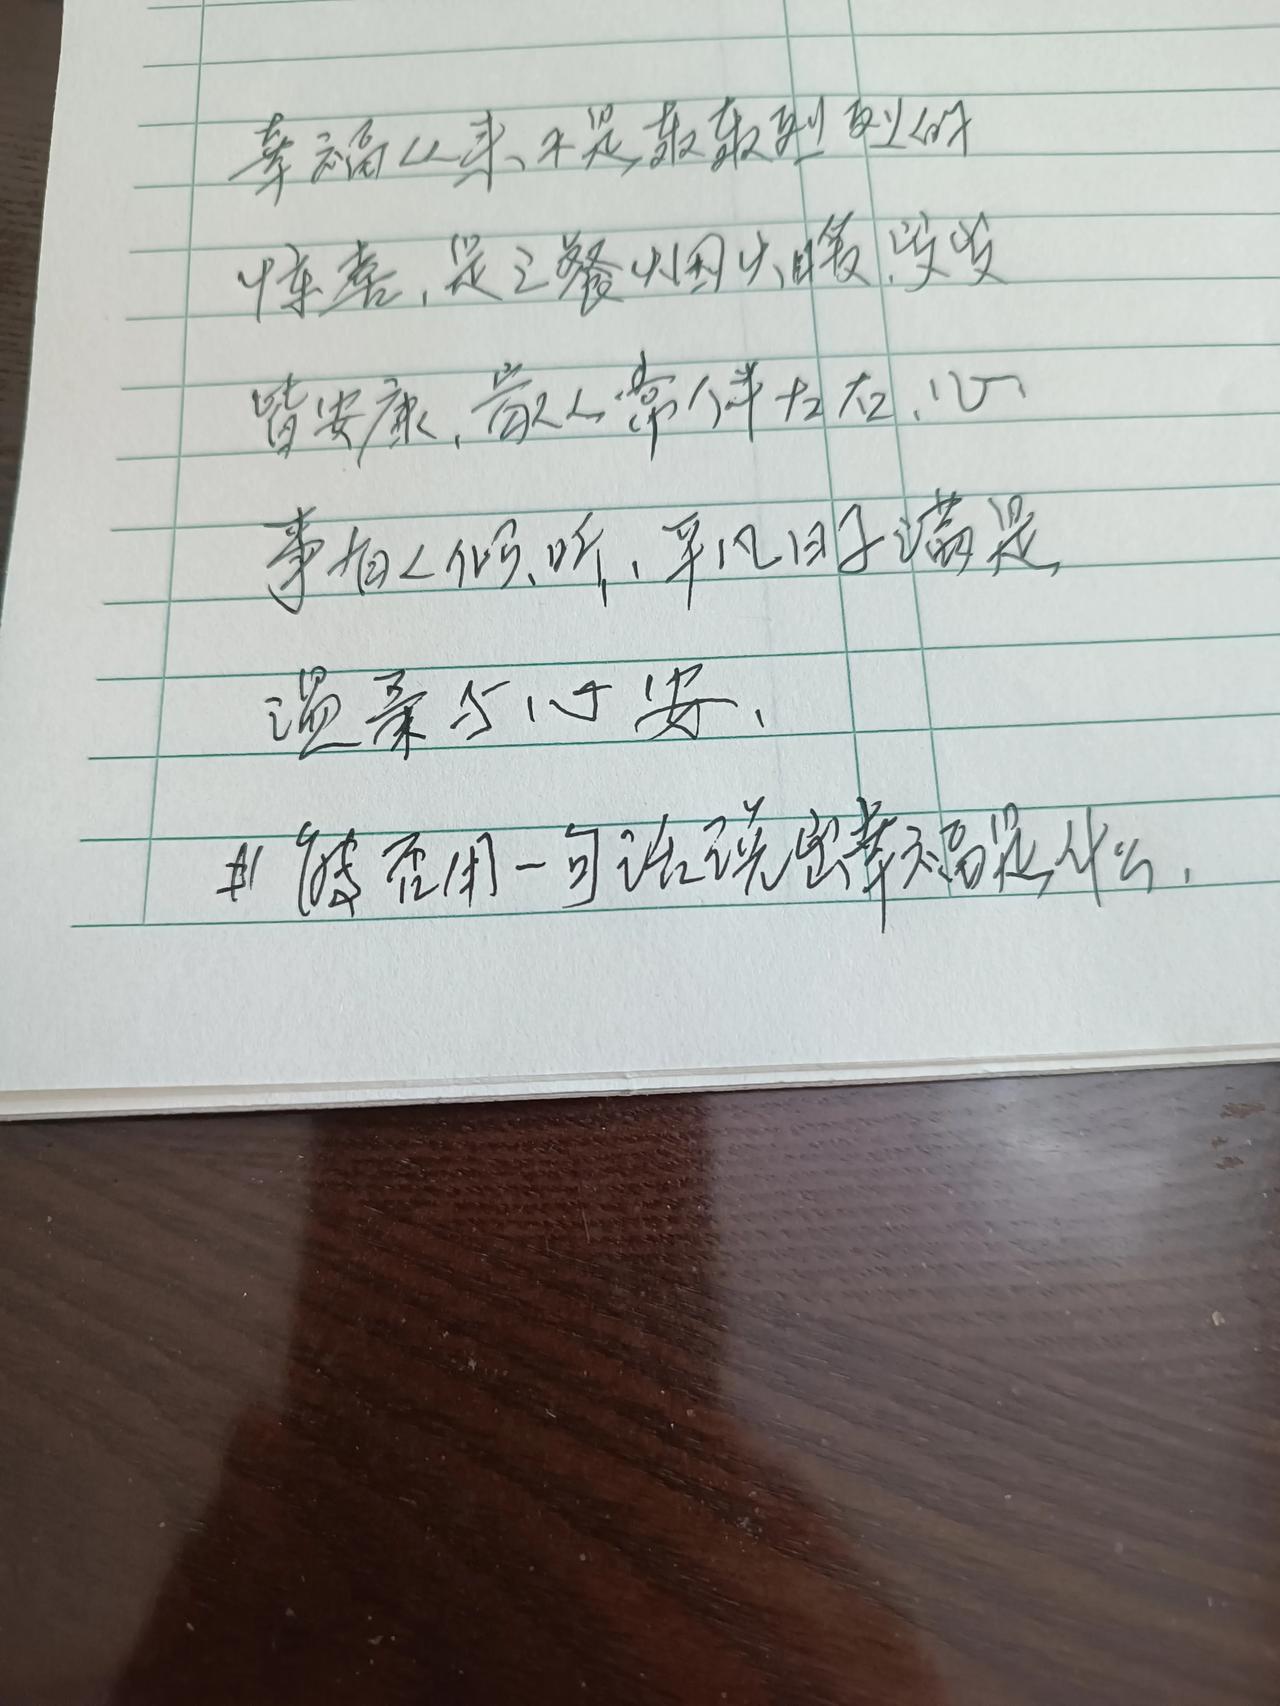 幸福从来不是轰轰烈烈的
惊喜,是三餐烟火暖,岁岁
皆安康,爱人常伴左右,心
事有人倾听,平凡日子满是
温柔与心安.
#能否用一句话说出幸福是什么.